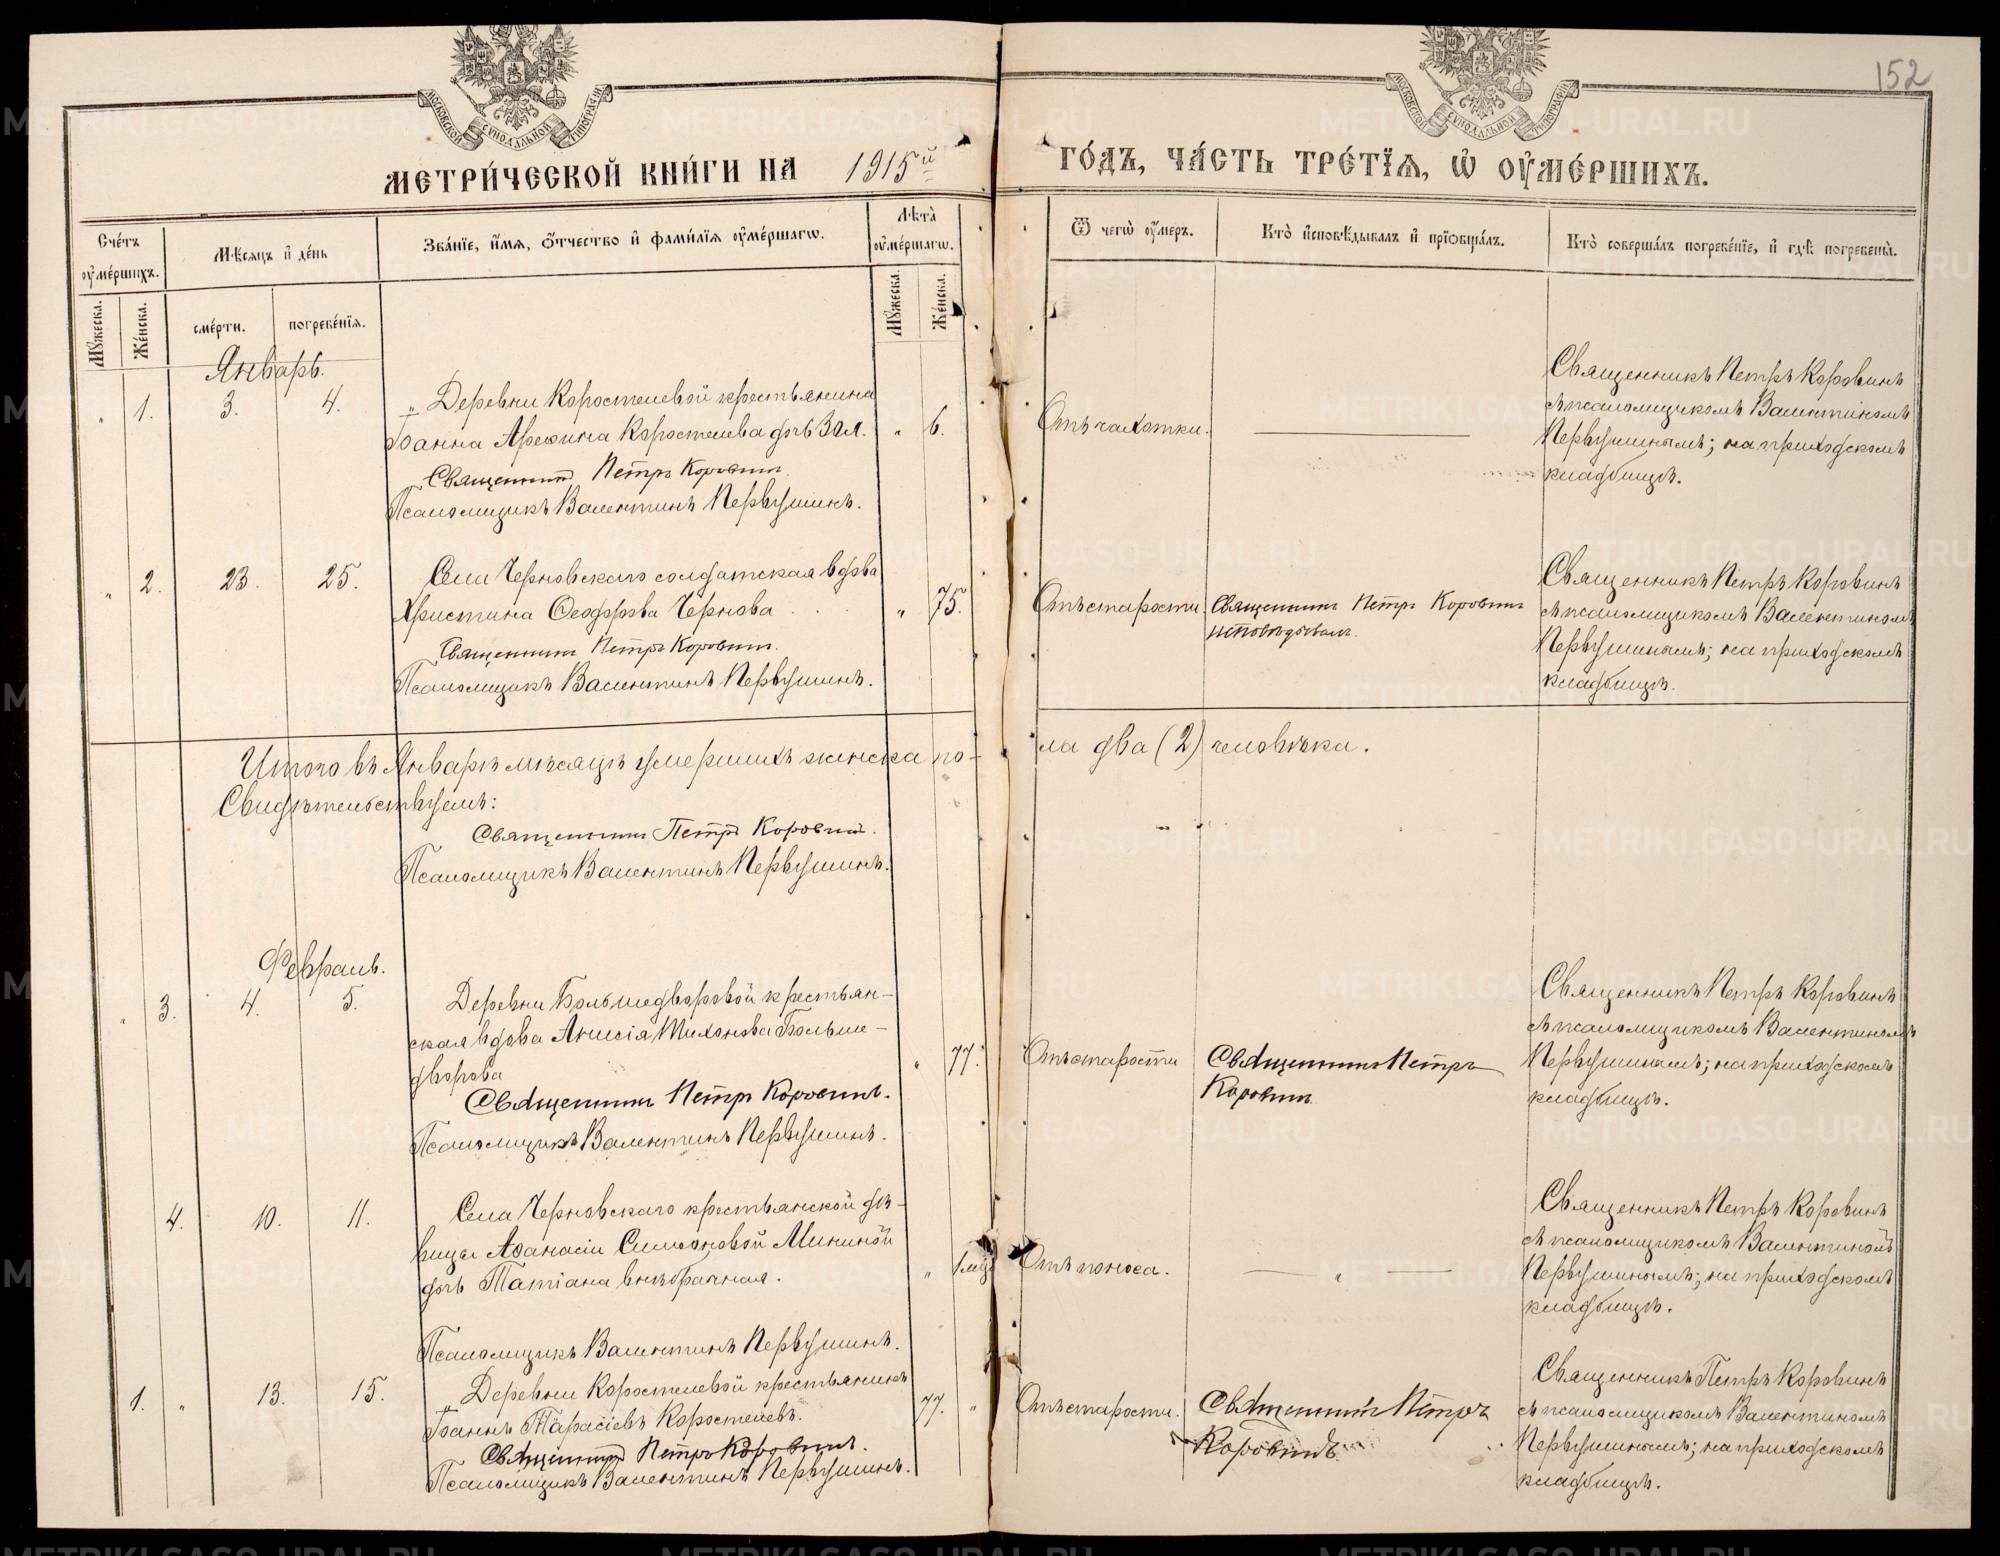 152
МОСКОВСКОЙ СѴНОДАЛЬНОЙ ТИПОГРАФІИ
МОСКОВСКОЙ СѴНОДАЛЬНОЙ ТИПОГРАФІИ
МЕТРИ́ЧЕСКОЙ КНИ́ГИ НА 1915й
ГО́ДЪ, ЧА́СТЬ ТРЕ́ТЇѦ, Ѡ҆ ОУ҆МЕ́РШИХЪ.
Сче́тъ оу҆ме́ршихъ.
Мѣ́сяцъ и҆ де́нь
Зва́нїе, и҆́мѧ, ѻ҆́тчество и҆ фами́лїѧ оу҆ме́ршагѡ.
Лѣ́та оу҆ме́ршагѡ.
Ѿ чегѡ̀ оу҆́меръ.
Кто̀ и҆сповѣ́дывалъ и҆ прїѡбща́лъ.
Кто̀ соверша́лъ погребе́нїе, и҆ гдѣ̀ погребены̀.
Мꙋ́жеска.
Же́нска.
сме́рти.
погребе́нїѧ.
Мꙋ́жеска.
Же́нска.
Январь.
" 1. 3. 4.
„ Деревни Коростелевой крестьянина
Іоанна Арефина Коростелева дочь Зоя.
Священникъ Петръ Коровинъ.
Псаломщикъ Валентинъ Первушинъ.
" 6.
Отъ чахотки.
Священникъ Петръ Коровинъ
съ псаломщикомъ Валентиномъ
Первушинымъ; на приходскомъ
кладбищѣ.
" 2. 23. 25.
Села Черновскаго солдатская вдова
Христина Ѳеодорова Чернова
Священникъ Петръ Коровинъ.
Псаломщикъ Валентинъ Первушинъ.
" 75.
Отъ старости.
Священникъ Петръ Коровинъ
исповѣдывалъ.
Священникъ Петръ Коровинъ
съ псаломщикомъ Валентиномъ
Первушинымъ; на приходскомъ
кладбищѣ.
Итого въ Январѣ мѣсяцѣ умершихъ женска по-
ла два (2) человѣка.
Свидѣтельствуемъ:
Священникъ Петръ Коровинъ.
Псаломщикъ Валентинъ Первушинъ.
Февраль.
" 3. 4. 5.
Деревни Большедворовой крестьян-
ская вдова Анисія Тихонова Больше-
дворова
Священникъ Петръ Коровинъ.
Псаломщикъ Валентинъ Первушинъ.
" 77.
Отъ старости
Священникъ Петръ
Коровинъ
Священникъ Петръ Коровинъ
съ псаломщикомъ Валентиномъ
Первушинымъ; на приходскомъ
кладбищѣ.
4. 10. 11.
Села Черновскаго крестьянской дѣ-
вицы Аѳанасіи Симеоновой Мининой
дочь Татіана внѣбрачная.
Псаломщикъ Валентинъ Первушинъ.
" 1 мц.
Отъ поноса.
"
Священникъ Петръ Коровинъ
съ псаломщикомъ Валентиномъ
Первушинымъ; на приходскомъ
кладбищѣ.
1. " 13. 15.
Деревни Коростелевой крестьянинъ
Іоаннъ Тарасіевъ Коростелевъ.
Священникъ Петръ Коровинъ.
Псаломщикъ Валентинъ Первушинъ.
77. "
Отъ старости.
Священникъ Петръ
Коровинъ
Священникъ Петръ Коровинъ
съ псаломщикомъ Валентиномъ
Первушинымъ; на приходскомъ
кладбищѣ.
METRIKI.GASO-URAL.RU